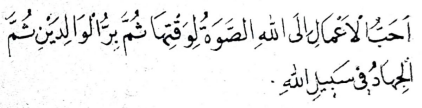 اَحَبُّ الْاَعْمَالِ اِلَى اللهِ الصَّلٰوةُ لِوَقْتِهَا ثُمَّ بِرُّ الْوَالِدَيْنِ ثُمَّ
الْجِهَادُ فِيْ سَبِيْلِ اللهِ .